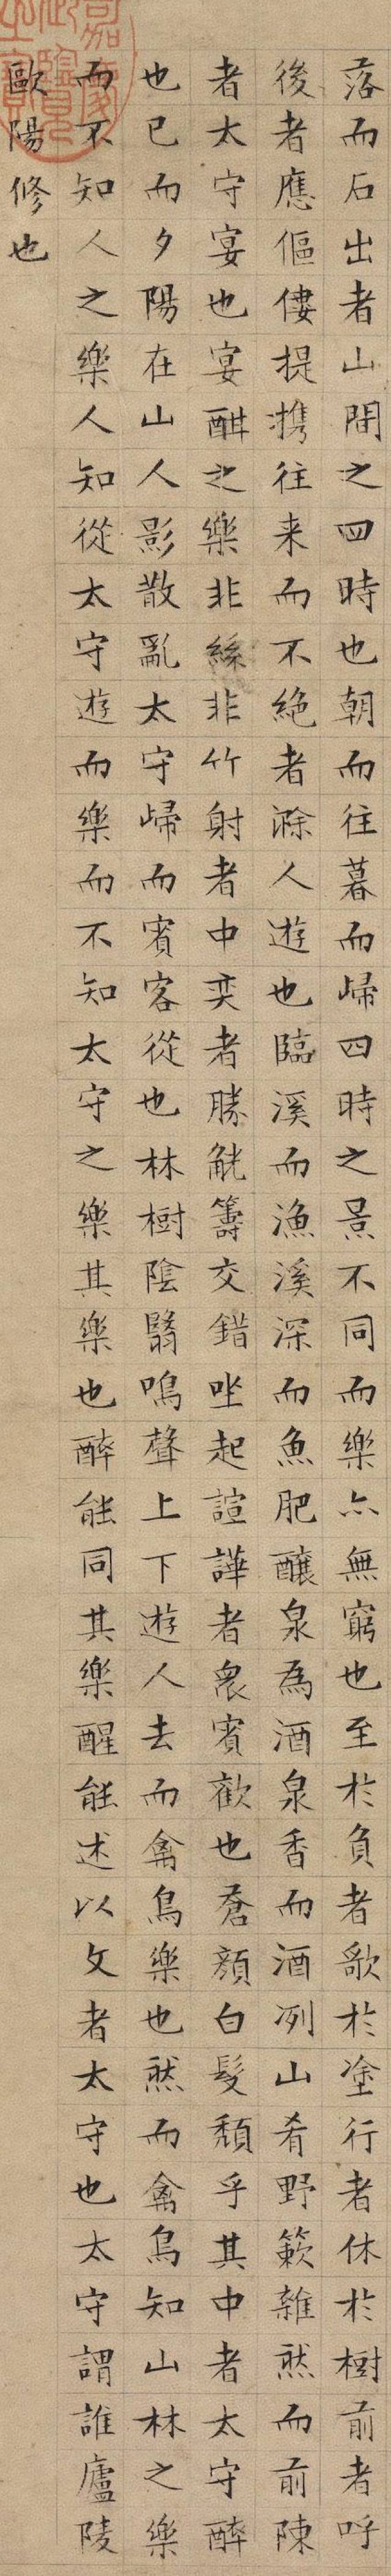 落而石出者山間之四時也朝而往暮而歸四時之景不同而樂亦無窮也至於負者歌於塗行者休於樹前者呼
後者應傴僂提攜往来而不絶者滁人遊也臨溪而漁溪深而魚肥釀泉為酒泉香而酒冽山肴野簌雜然而前陳
者太守宴也宴酣之樂非絲非竹射者中奕者勝觥籌交錯坐起諠譁者衆賓歡也蒼顔白髮頹乎其中者太守醉
也已而夕陽在山人影散亂太守歸而賓客從也林樹陰翳鳴聲上下遊人去而禽鳥樂也然而禽鳥知山林之樂
而不知人之樂人知從太守遊而樂而不知太守之樂其樂也醉能同其樂醒能述以文者太守也太守謂誰廬陵
歐陽修也